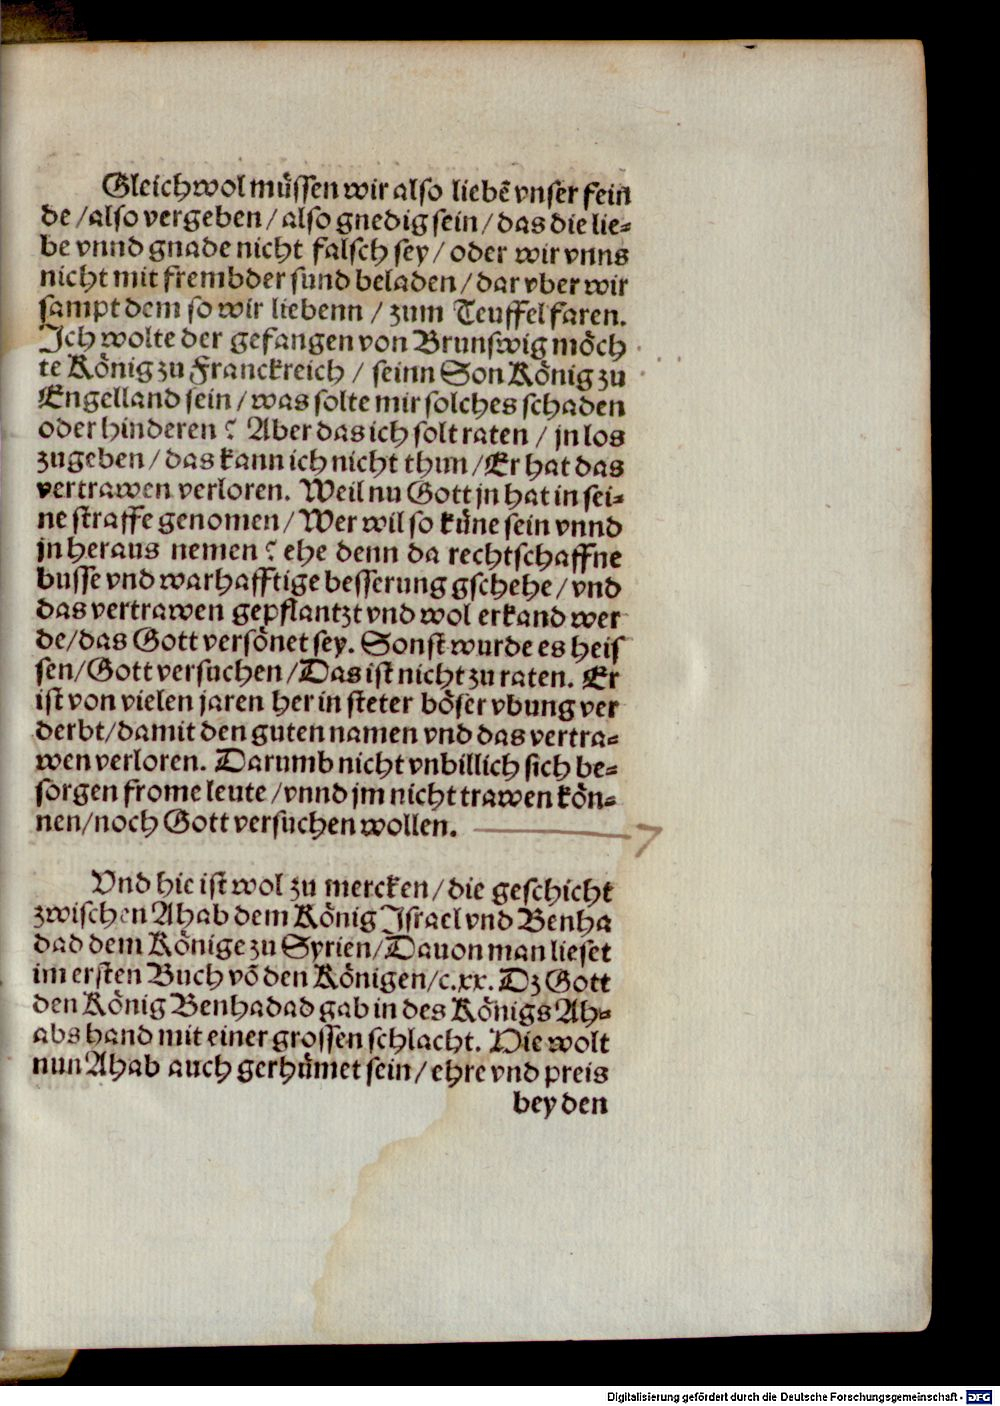 Gleichwol müssen wir also liebē vnser fein
de / also vergeben / also gnedig sein / das die lie=
be vnnd gnade nicht falsch sey / oder wir vnns
nicht mit frembder sund beladen / dar vber wir
sampt dem so wir liebenn / zum Teuffel faren.
Ich wolte der gefangen von Brunswig möch
te König zu Franckreich / seinn Son König zu
Engelland sein / was solte mir solches schaden
oder hinderen ? Aber das ich solt raten / jn los
zugeben / das kann ich nicht thun / Er hat das
vertrawen verloren. Weil nu Gott jn hat in sei=
ne straffe genomen / Wer wil so küne sein vnnd
jn heraus nemen ? ehe denn da rechtschaffne
busse vnd warhafftige besserung gschehe / vnd
das vertrawen gepflantzt vnd wol erkand wer
de / das Gott versönet sey. Sonst wurde es heis
sen / Gott versuchen / Das ist nicht zu raten. Er
ist von vielen jaren her in steter böser vbung ver
derbt / damit den guten namen vnd das vertra=
wen verloren. Darumb nicht vnbillich sich be=
sorgen frome leute / vnnd jm nicht trawen kön=
nen / noch Gott versuchen wollen.
Vnd hie ist wol zu mercken / die geschicht
zwischen Ahab dem König Israel vnd Benha
dad dem Könige zu Syrien / Dauon man lieset
im ersten Buch vō den Königen / c.xx. Dz Gott
den König Benhadad gab in des Königs Ah=
abs hand mit einer grossen schlacht. Die wolt
nun Ahab auch gerhümet sein / ehre vnd preis
bey den
Digitalisierung gefördert durch die Deutsche Forschungsgemeinschaft - DFG